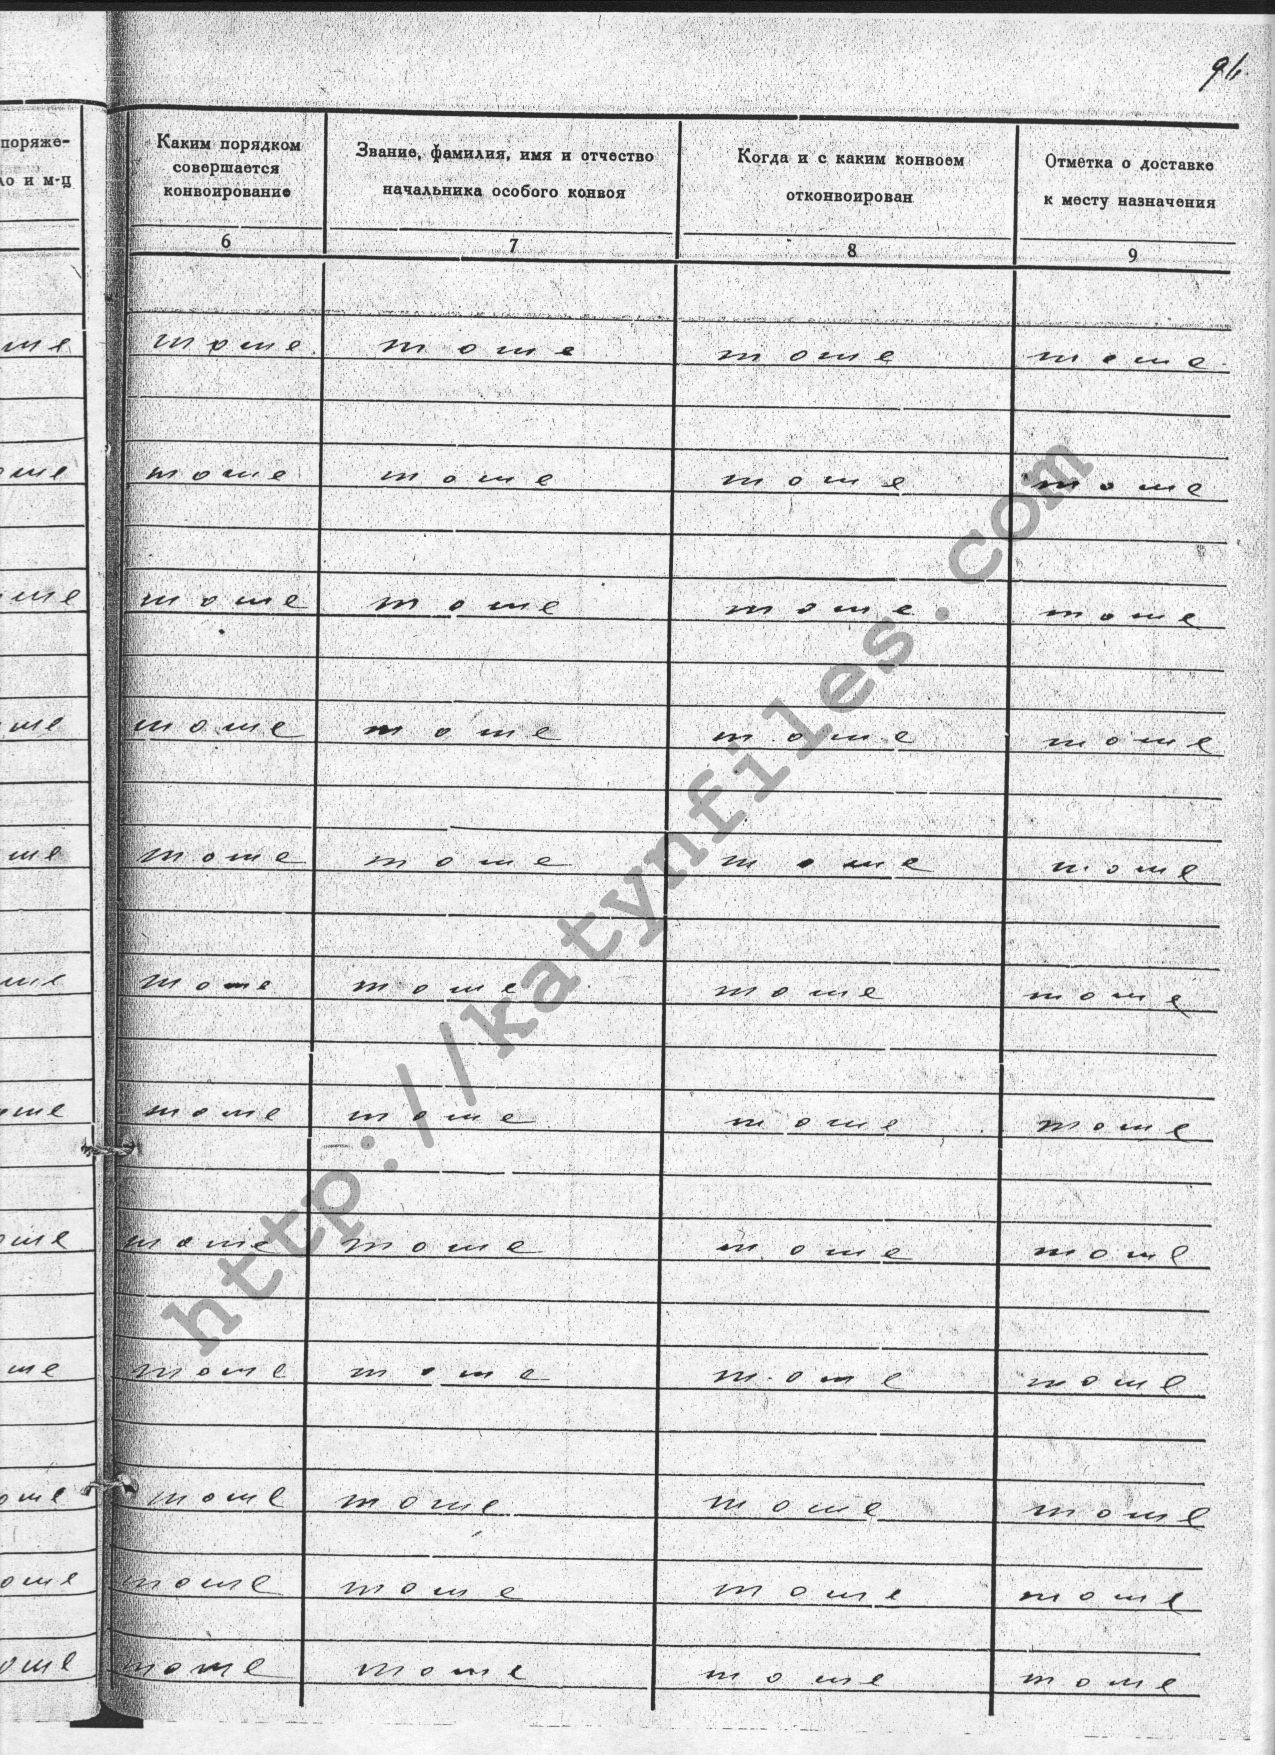 96.
поряже-
ло и м-ц
Каким порядком
совершается
конвоирование
Звание, фамилия, имя и отчество
начальника особого конвоя
Когда и с каким конвоем
отконвоирован
Отметка о доставке
к месту назначения
6 7 8 9
ше тоше тоше тоше тоше
оше тоше тоше тоше тоше
оше тоше тоше тоше тоше
ше тоше тоше тоше тоше
ше тоше тоше тоше тоше
ше тоше тоше тоше тоше
оше тоше тоше тоше тоше
оше тоше тоше тоше тоше
ше тоше тоше тоше тоше
оше тоше тоше тоше тоше
оше тоше тоше тоше тоше
оше тоше тоше тоше тоше
http://katynfiles.com